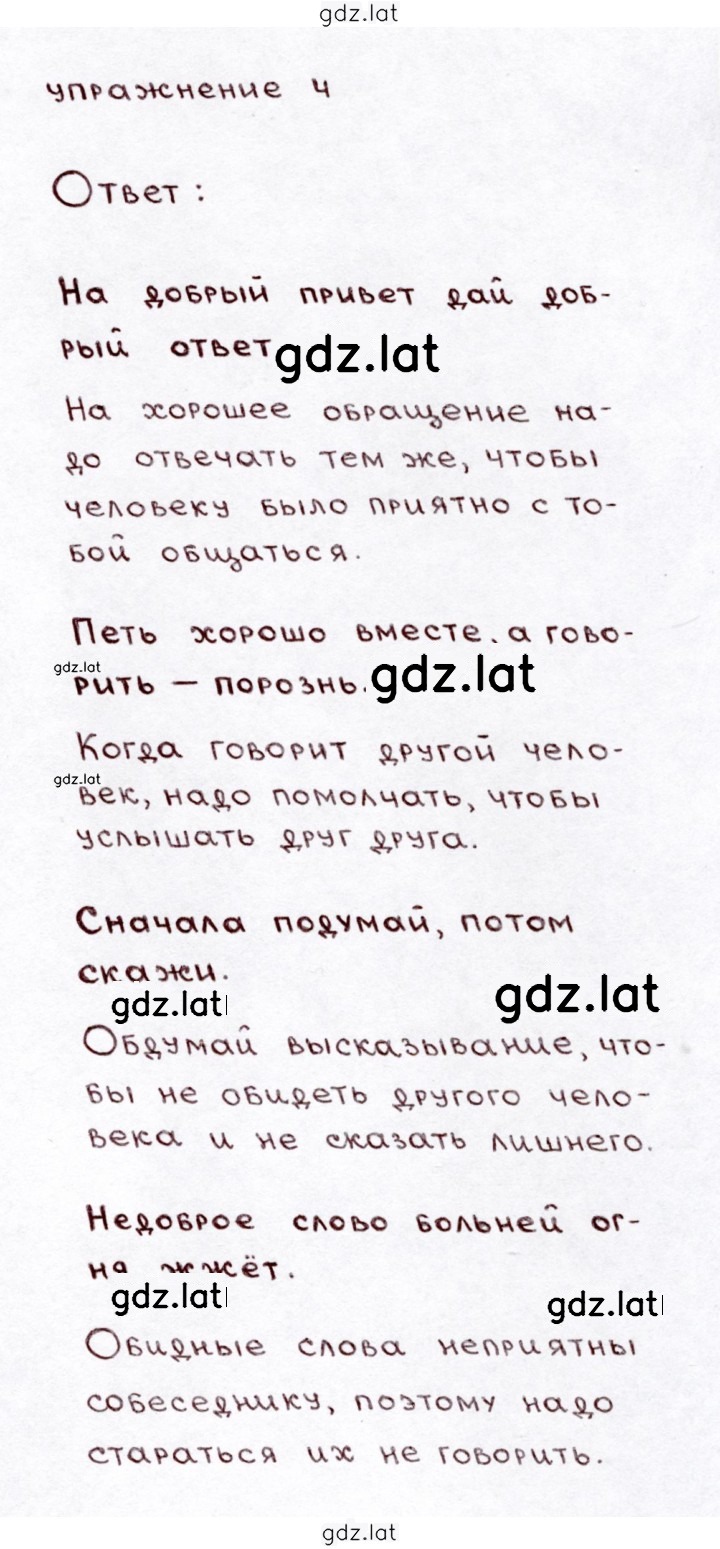 gdz.lat
упражнение 4
Ответ:
На добрый привет дай доб-
рый ответ gdz.lat
На хорошее обращение на-
до отвечать тем же, чтобы
человеку было приятно с то-
бой общаться.
Петь хорошо вместе. а гово-
gdz.lat
рить — порознь. gdz.lat
Когда говорит другой чело-
gdz.lat
век, надо помолчать, чтобы
услышать друг друга.
Сначала подумай, потом
скажи.
gdz.lat gdz.lat
Обдумай высказывание, что-
бы не обидеть другого чело-
века и не сказать лишнего.
Недоброе слово больней ог-
на жжёт.
gdz.lat gdz.lat
Обидные слова неприятны
собеседнику, поэтому надо
стараться их не говорить.
gdz.lat